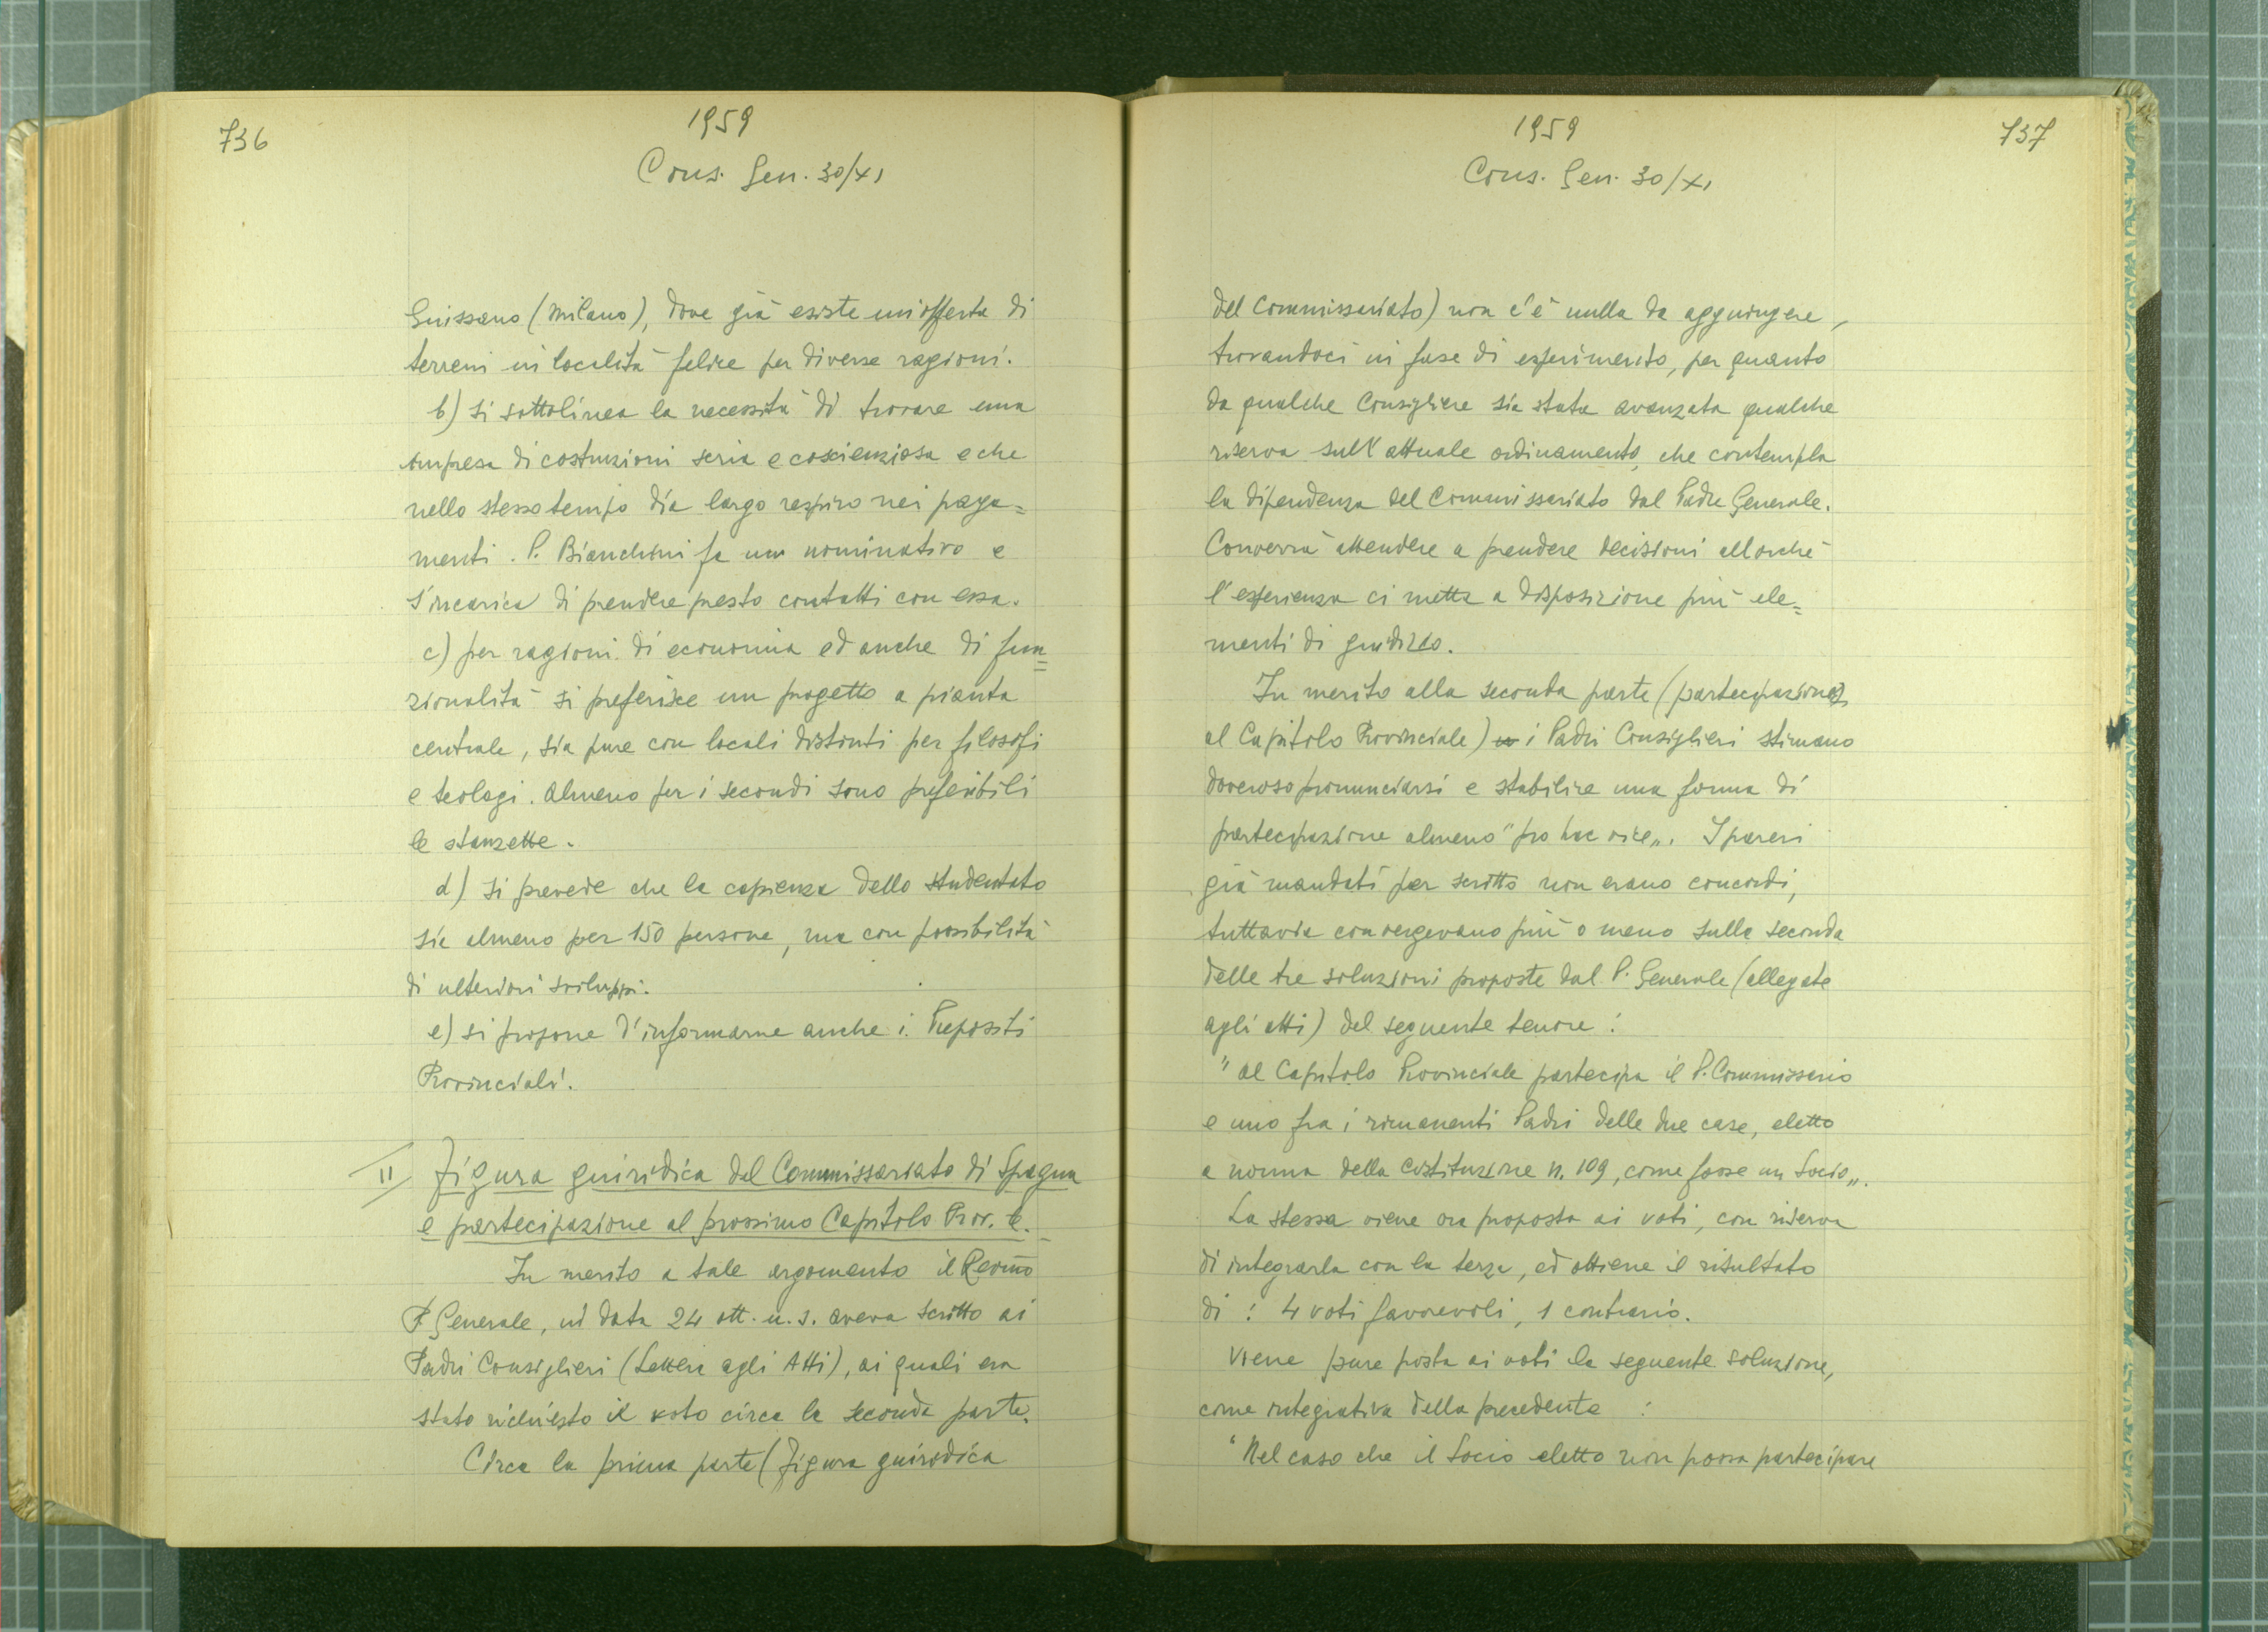 736
1959
Cons. Gen. 30/XI
Giussano (Milano), dove già esiste un'offerta di
terreni in località felice per diverse ragioni.
b) si sottolinea la necessità di trovare una
impresa di costruzioni seria e coscienziosa e che
nello stesso tempo dia largo respiro nei paga=
menti. P. Bianchini fa un nominativo e
s'incarica di prendere presto contatti con essa.
c) per ragioni di economia ed anche di fun=
zionalità si preferisce un progetto a pianta
centrale, sia pure con locali distinti per filosofi
e teologi. Almeno per i secondi sono preferibili
le stanzette.
d) si prevede che la capienza dello studentato
sia almeno per 150 persone, ma con possibilità
di ulteriori sviluppi.
e) si propone d'informarne anche i Prepositi
Provinciali.
II Figura giuridica del Commissariato di Spagna
e partecipazione al prossimo Capitolo Prov.le.
In merito a tale argomento il Rev.mo
P. Generale, in data 24 ott. u.s. aveva scritto ai
Padri Consiglieri (Lettera agli Atti), ai quali era
stato richiesto il voto circa la seconda parte.
Circa la prima parte (Figura giuridica
1959
737
Cons. Gen. 30/XI
del Commissariato) non c'è nulla da aggiungere,
trovandoci in fase di esperimento, per quanto
da qualche Consigliere sia stata avanzata qualche
riserva sull'attuale ordinamento, che contempla
la dipendenza del Commissariato dal Padre Generale.
Converrà attendere a prendere decisioni allorché
l'esperienza ci metta a disposizione più ele=
menti di giudizio.
In merito alla seconda parte (partecipazione
al Capitolo Provinciale) i Padri Consiglieri stimano
doveroso pronunciarsi e stabilire una forma di
partecipazione almeno "pro hac vice„. I pareri
già mandati per scritto non erano concordi,
tuttavia convergevano più o meno sulla seconda
delle tre soluzioni proposte dal P. Generale (allegate
agli atti) del seguente tenore:
"Al Capitolo Provinciale partecipa il P. Commissario
e uno fra i rimanenti Padri delle due case, eletto
a norma della Costituzione n. 109, come fosse un Socio„.
La stessa viene ora proposta ai voti, con riserva
di integrarla con la terza, ed ottiene il risultato
di: 4 voti favorevoli, 1 contrario.
Viene pure posta ai voti la seguente soluzione,
come integrativa della precedente:
"Nel caso che il Socio eletto non possa partecipare